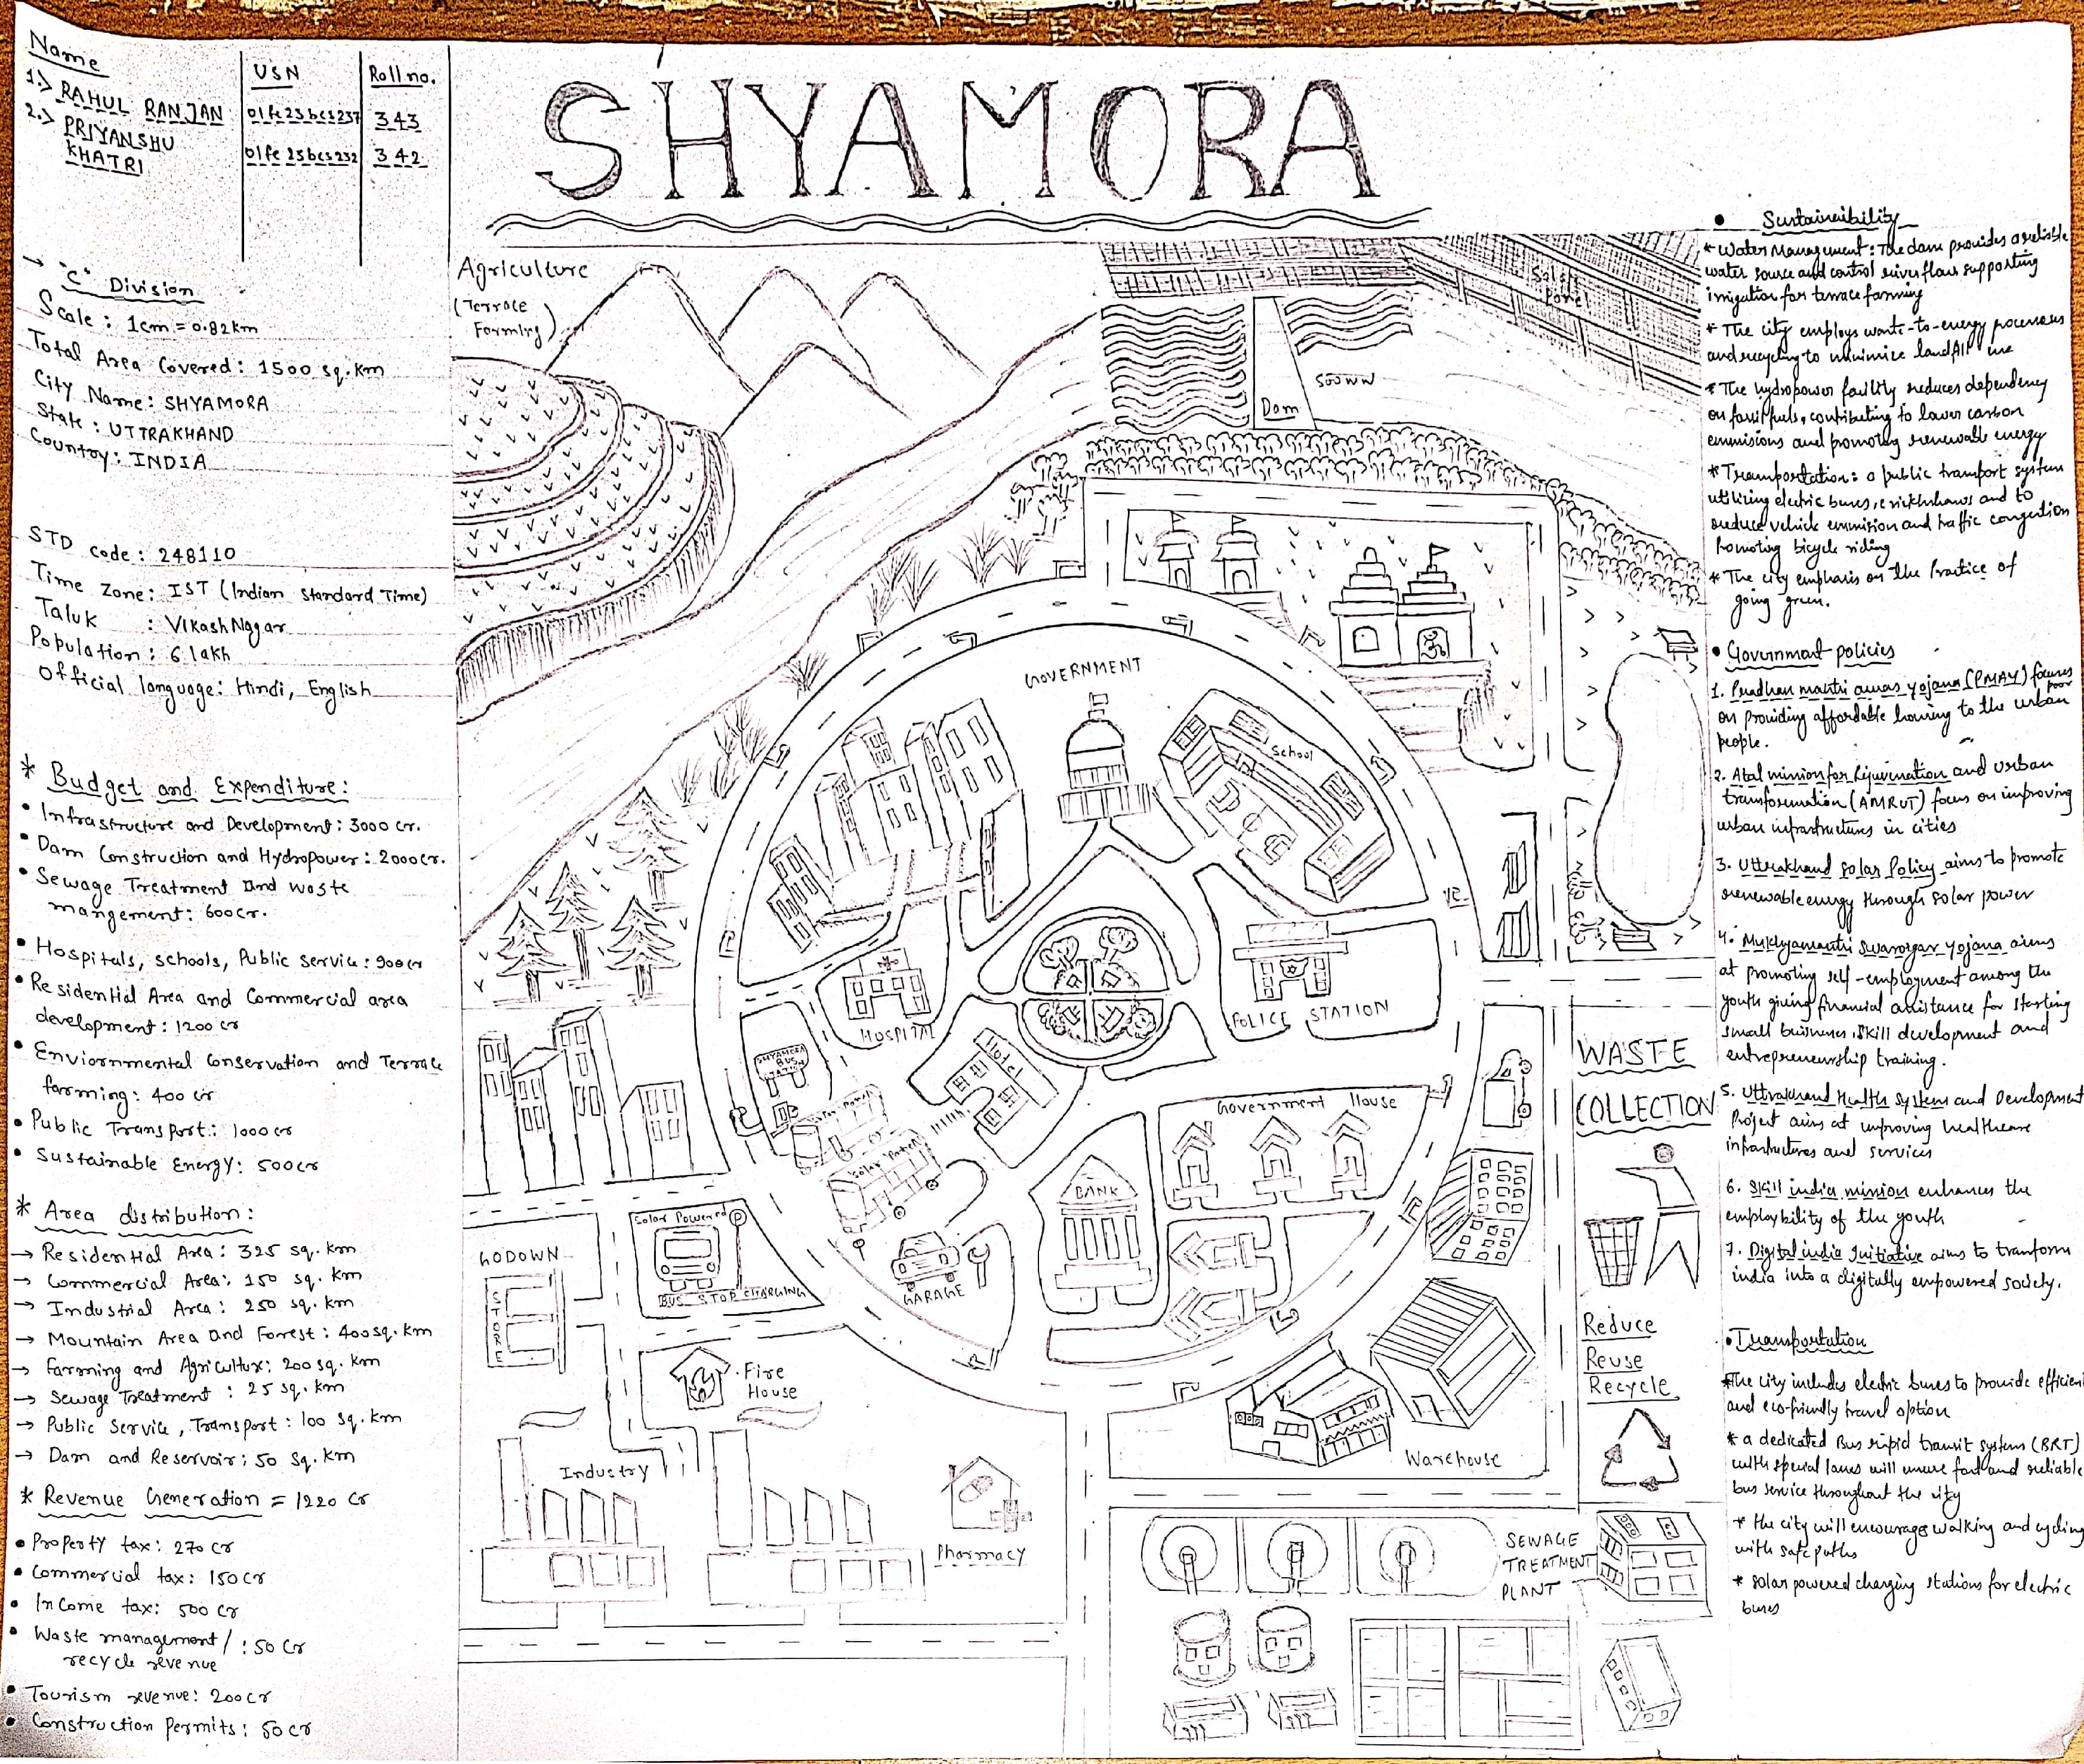 Name
USN
Roll no.
1.> RAHUL RANJAN
01fe23bcs237
343
2.> PRIYANSHU
KHATRI
01fe23bcs232
342
SHYAMORA
→ "C" Division
Scale : 1cm = 0.82km
Total Area Covered: 1500 sq.km
City Name: SHYAMORA
State : UTTRAKHAND
Country: INDIA
STD code : 248110
Time Zone: IST (Indian Standard Time)
Taluk : VikashNagar
Population : 6 lakh
Official language: Hindi, English
* Budget and Expenditure:
• Infrastructure and Development: 3000 cr.
• Dam Construction and Hydropower: 2000cr.
• Sewage Treatment and waste
mangement: 600cr.
• Hospitals, schools, Public service: 900cr
• Residential Area and Commercial area
development: 1200 cr
• Enviornmental Conservation and Terrace
farming: 400 cr
• Public Transport: 1000 cr
• Sustainable Energy: 500cr
* Area distribution:
→ Residential Area: 325 sq. km
→ Commercial Area: 150 sq. km
→ Industrial Area: 250 sq. km
→ Mountain Area and Forest: 400 sq. km
→ Farming and Agricultur: 200 sq. km
→ Sewage Treatment : 25 sq. km
→ Public Service, Transport: 100 sq. km
→ Dam and Reservoir: 50 sq. km
* Revenue Generation = 1220 Cr
• Property tax: 270 cr
• Commercial tax: 150 cr
• Income tax: 500 cr
• Waste management/ : 50 Cr
recycle revenue
• Tourism revenue: 200 cr
• Construction Permits: 50 cr
Agriculture
(Terrace
Farming)
Solar
Panel
500WW
Dam
ॐ
GOVERNMENT
School
HOSPITAL
POLICE STATION
SHYAMORA
BUS
STATION
Solar Panel
Solar Panel
Government House
BANK
GARAGE
Solar Powered
P
BUS STOP CHARGING
GODOWN
STORE
Fire
House
Industry
Pharmacy
Warehouse
WASTE
COLLECTION
Reduce
Reuse
Recycle
SEWAGE
TREATMENT
PLANT
• Sustainibility
* Water Management: The dam provides a reliable
water source and control river flow supporting
irrigation for terrace farming
* The city employs waste-to-energy processes
and recycling to minimize landfill use
* The hydropower facility reduces dependency
on fossil fuels, contributing to lower carbon
emmisions and promoting renewable energy
* Transportation: a public transport system
utilizing electric buses, e rickhshaws and to
reduce vehicle emmision and traffic congestion
Promoting bicycle riding
* The city emphasis on the Practice of
going green.
• Government policies
1. Pradhan mantri awas yojana (PMAY) focuses
on providing affordable housing to the urban poor
people.
2. Atal mission for Rejuvination and urban
transformation (AMRUT) focus on improving
urban infrastructures in cities
3. Uttrakhand Solar Policy aims to promote
renewable energy through solar power
4. Mukhyamantri swarozgar yojana aims
at promoting self-employment among the
youth giving financial assistance for starting
small business, skill development and
entrepreneurship training.
5. Uttrakhand Health System and Development
Project aims at improving healthcare
infrastructures and services
6. Skill india mission enhances the
employbility of the youth
7. Digital india Initiative aims to transform
india into a digitally empowered society.
• Transportation
* The city includes electric buses to provide efficient
and eco-friendly travel option
* a dedicated Bus rapid transit system (BRT)
with special lanes will ensure fast and reliable
bus service throughout the city
* the city will encourage walking and cycling
with safe paths
* solar powered charging stations for electric
buses